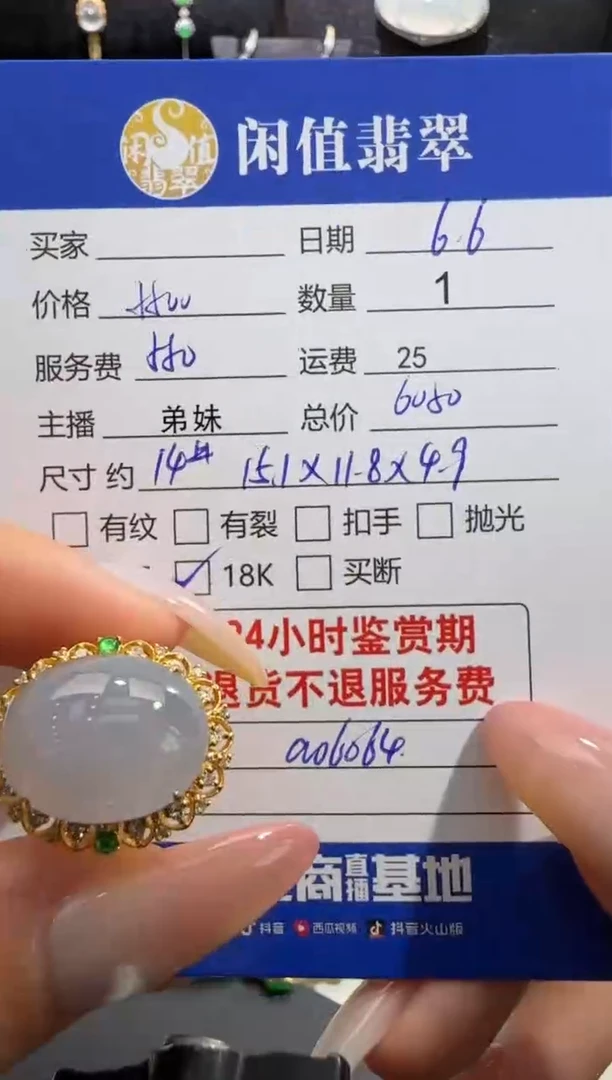 闲值
翡翠
闲值翡翠
买家 日期 6.6
价格 5500 数量 1
服务费 550 运费 25
主播 弟妹 总价 6080
尺寸 约 14# 15.1×11.8×4.9
有纹 有裂 扣手 抛光
18K 买断
24小时鉴赏期
退货不退服务费
a06064.
商直播基地
抖音 西瓜视频 抖音火山版